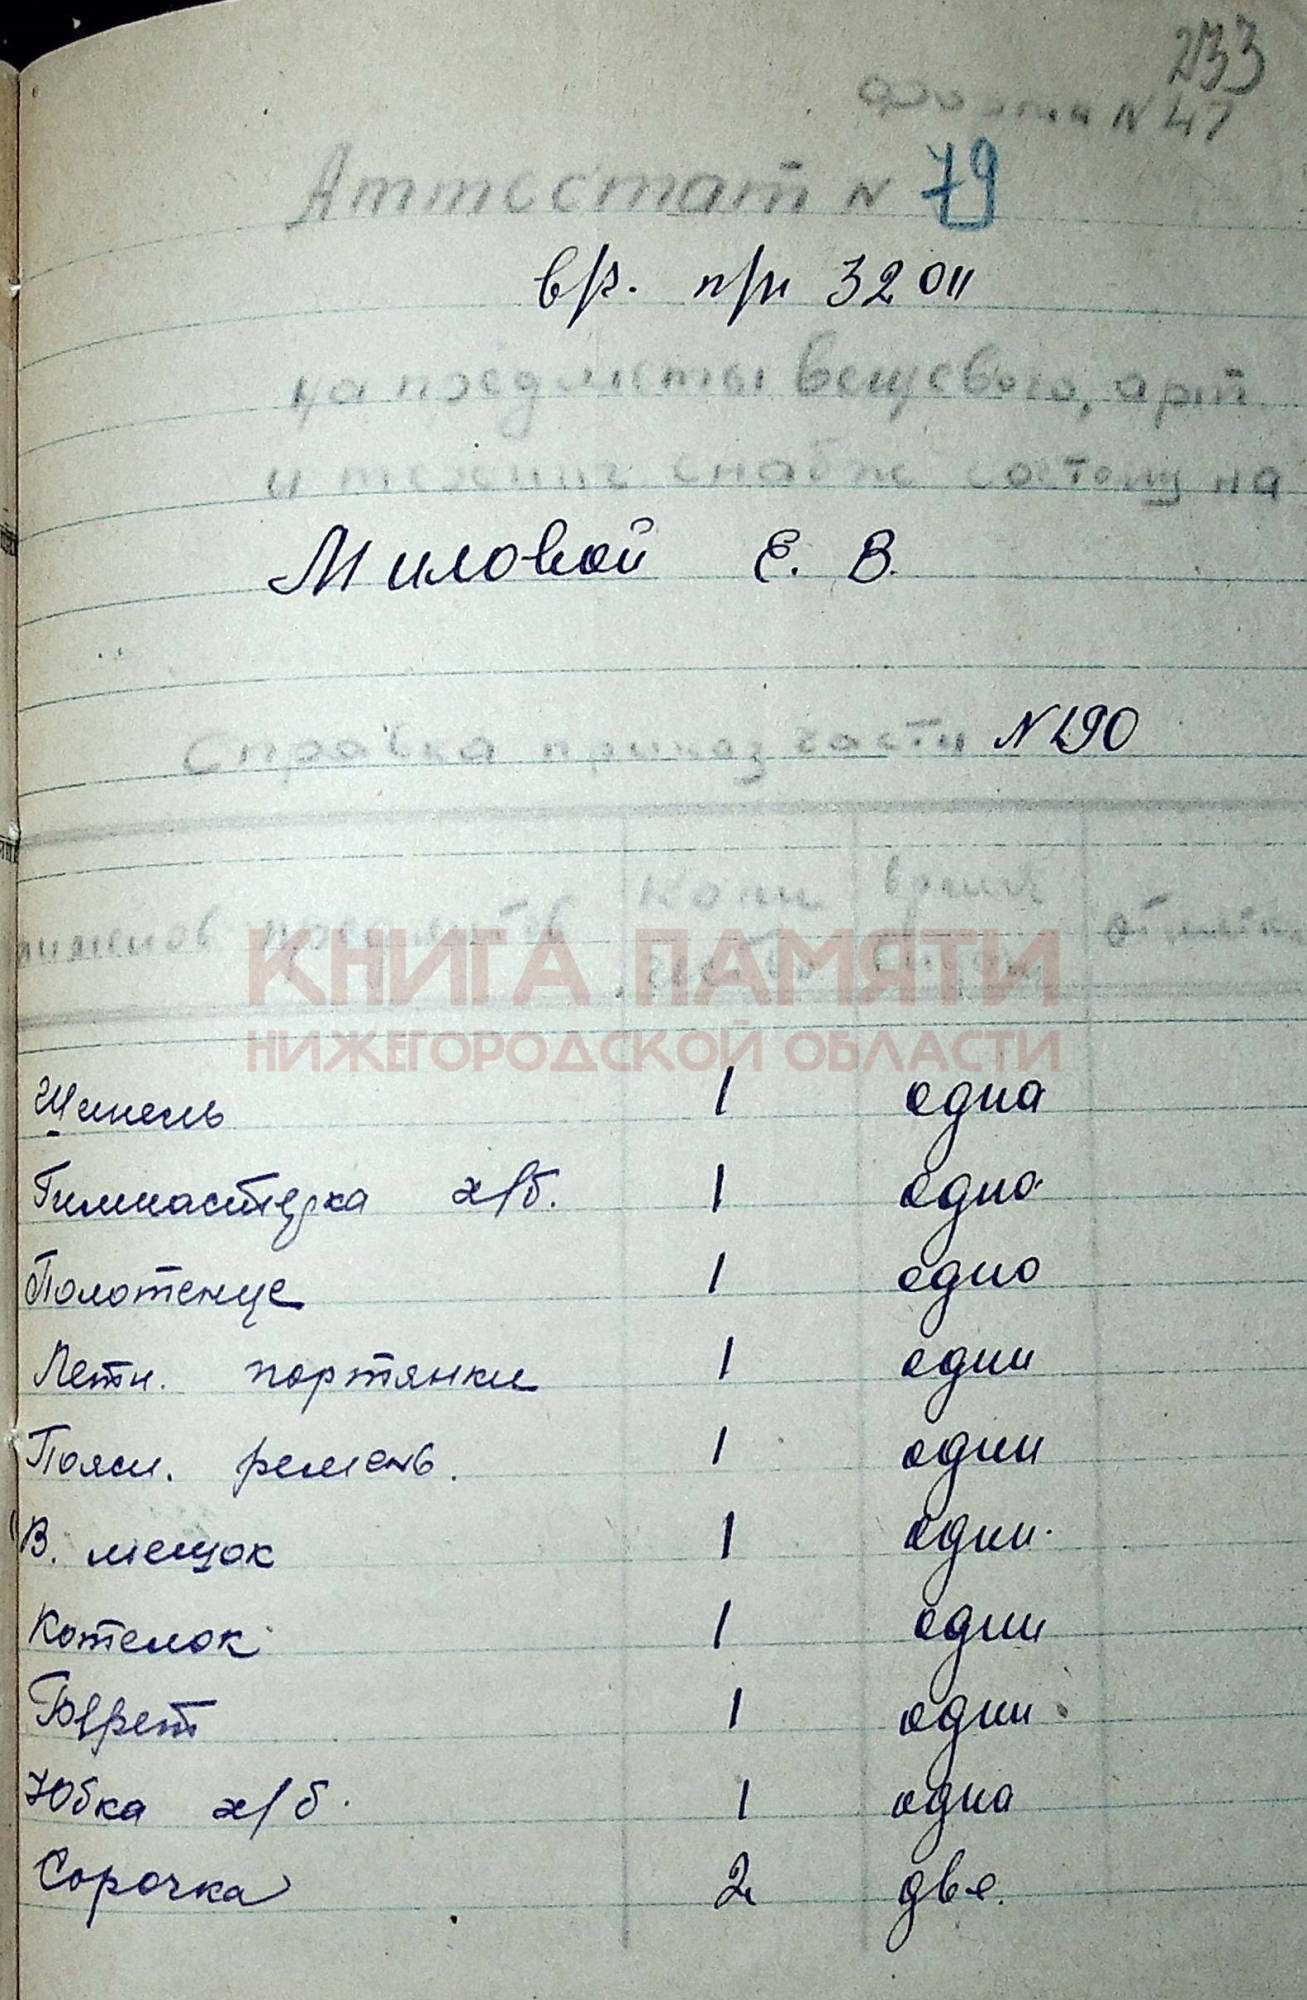 233
форма N 47
Аттестат N 79
вр. при 32 ОП
на предметы вещевого, арт
и технич снабж состому на
Миловой Е. В.
Справка приказ части N 190
предметов
Коли
чество
время
отметка
КНИГА ПАМЯТИ
НИЖЕГОРОДСКОЙ ОБЛАСТИ
Шинель 1 одна
Гимнастерка х/б. 1 одно
Полотенце 1 одно
Летн. портянки 1 один
Поясн. ремень. 1 один
В. мешок 1 один.
Котелок 1 один
Берет 1 один
Юбка х/б. 1 одна
Сорочка 2 две.